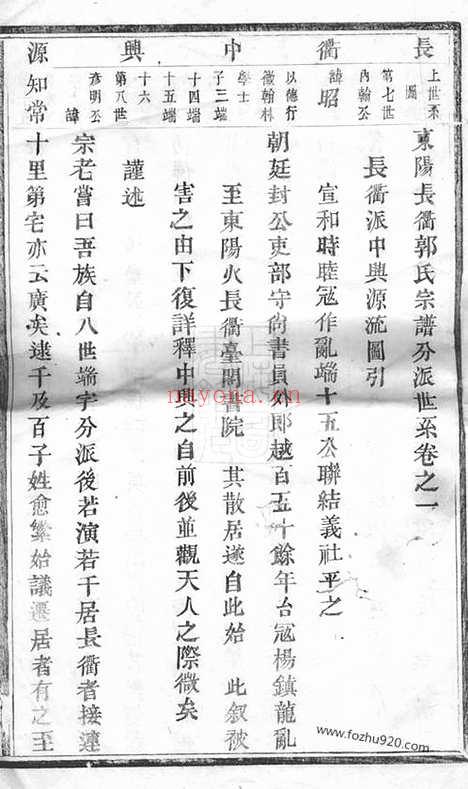 長衢中興源
上世系圖
第七世
內翰公
諱昭
以德行
徵翰林
學士
子三端
十四端
十五端
十六
第八世
彥明公
諱
知常
東陽長衢郭氏宗譜分派世系卷之一
長衢派中興源流圖引
宣和時睦寇作亂端十五公聯結義社平之
朝廷封公吏部守尚書員外郎越百五十餘年台寇楊鎮龍亂
至東陽火長衢臺閣書院 其散居遂自此始 此叙被
害之由下復詳釋中興之自前後並觀天人之際微矣
謹述
宗老嘗曰吾族自八世端字分派後若演若千居長衢者接連
十里第宅亦云廣矣逮千及百子姓愈繁始議遷居者有之至
nuyona.cn
www.fozhu920.com